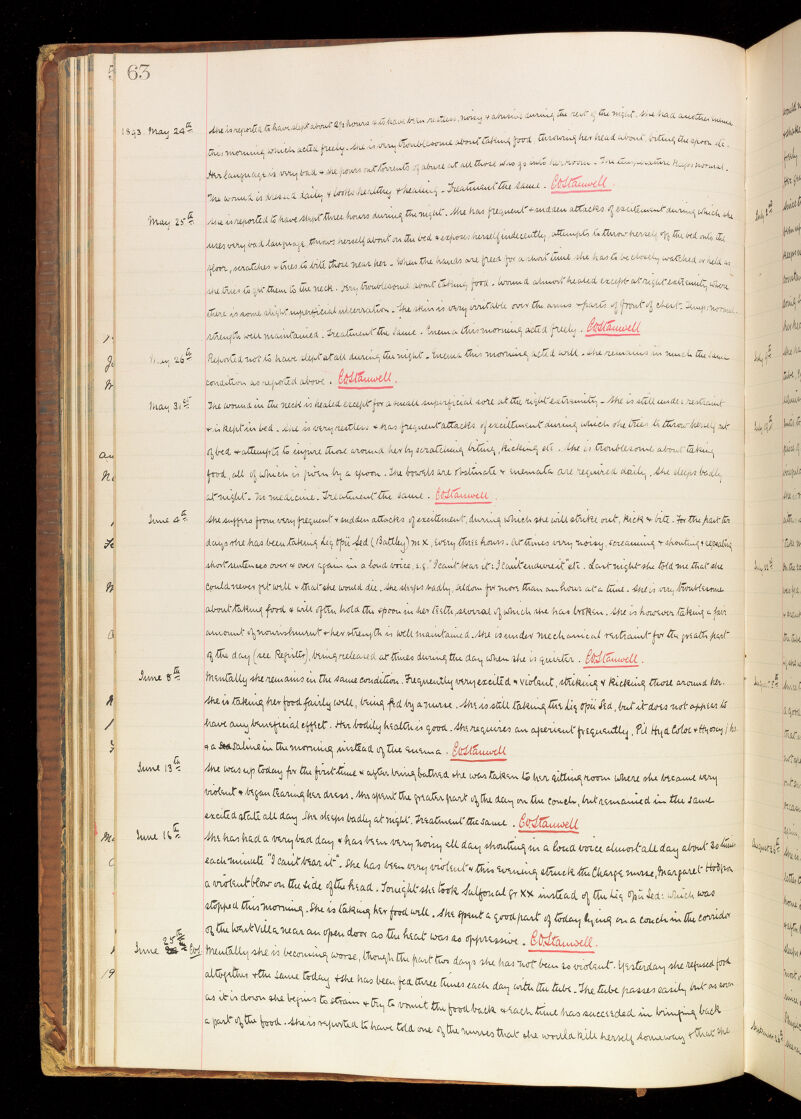 63
1893 May 24th She is reported to have slept about 2½ hours & to have been restless, noisy & abusive during the rest of the night. She had another enema
this morning which acted freely. She is very troublesome about taking food, throwing her head about, biting the spoon etc.
Her language is very bad & she pours out torrents of abuse at all those who go into her room. The temperature keeps normal.
The wound is dressed daily & looks healthy & healing. Treatment the same. COStanwell
May 25th She is reported to have slept three hours during the night. She has frequent & sudden attacks of excitement during which she
uses very bad language, throws herself about on the bed & exposes herself indecently, attempts to throw herself off the bed onto the
floor, scratches & tries to bite those near her. When the hands are freed for a short time she has to be closely watched or held as
she tries to get them to the neck. Very troublesome about taking food. Wound almost healed except at right extremity, where
there is some slight superficial ulceration. The skin is very irritable over the arms & parts of front of chest. Temp: normal.
Strength well maintained. Treatment the same. Enema this morning acted freely. COStanwell
May 26th Reported not to have slept at all during the night. Enema this morning acted well. She remains in much the same
condition as reported above. COStanwell.
May 31st The wound in the neck is healed except for a small superficial sore at the right extremity. She is still under restraint
& is kept in bed. She is very restless & has frequent attacks of excitement during which she tries to throw herself out
of bed & attempts to injure those around her by scratching, biting, kicking etc. She is troublesome about taking
food, all of which is given by a spoon. The bowels are obstinate & enemata are required daily. She sleeps badly
at night. No medicine. Treatment the same. COStanwell
June 4th She suffers from very frequent & sudden attacks of excitement, during which she will strike out, kick & bite. For the past
days she has been taking Liq Opii Sed (Battley) m X, every three hours. At times very noisy, screaming & shouting & repeating
short sentences over & over again in a loud voice, e.g. "I can't bear it: I can't endure it" etc. Last night she told me that she
could never get well & that she would die. She sleeps badly, seldom for more than an hour at a time. She is very troublesome
about taking food & will often hold the spoon in her teeth, several of which she has broken. She is however taking a fair
amount of nourishment & her strength is well maintained. She is under mechanical restraint for the greater part
of the day (see Register), being released at times during the day when she is quieter. COStanwell.
June 8th Mentally she remains in the same condition. Frequently very excited & violent, striking & kicking those around her.
She is taking her food fairly well, being fed by a nurse. She is still taking the Liq Opii Sed, but it does not appear to
have any beneficial effect. Her bodily health is good. She requires an aperient frequently, Pil Hyd Coloc & Hyoscy
& a saline in the morning instead of the enema. COStanwell
June 13th She was up today for the first time & after being bathed she was taken to her sitting room where she became very
violent & began tearing her dress. She spent the greater part of the day on the couch, but remained in the same
excited state all day. She sleeps badly at night. Treatment the same. COStanwell
June 16th She has had a very bad day & has been very noisy all day shouting in a loud voice almost all day about 20 times
each minute "I can't bear it". She has been very violent & this evening struck the Charge nurse, Margaret Hodgson
a violent blow on the side of the head. Tonight she took Sulfonal gr XX instead of the Liq Opii Sed: which was
stopped this morning. She is taking her food well. She spent a good part of today lying on a couch in the corridor
of the West Villa near an open door as the heat was so oppressive. COStanwell.
June 25th Mentally she is becoming worse, though the past two days she has not been so violent. Yesterday she refused food
altogether & the same today & she has been fed three times each day with the tube. The tube passes easily but as soon
as it is down she begins to strain & try to vomit the food back & each time has succeeded in bringing back
a part of the food. She is reported to have told one of the nurses that she would kill herself someway & that she